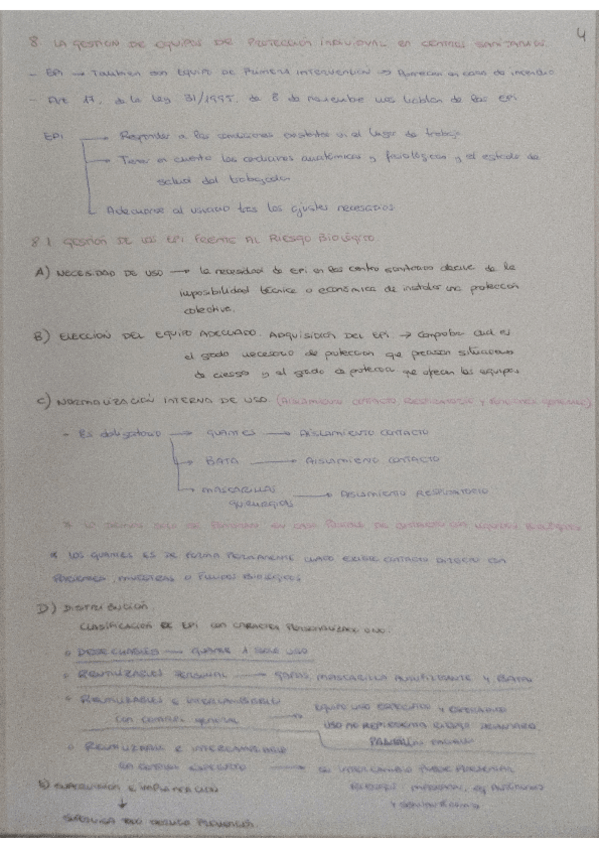 4
8. LA GESTIÓN DE EQUIPOS DE PROTECCIÓN INDIVIDUAL EN CENTROS SANITARIOS.
- EPI → También son EQUIPO DE PRIMERA INTERVENCIÓN → en caso de incendio
- Art 17. de la Ley 31/1995. de 8 de noviembre nos hablan de los EPI
EPI → Responder a las condiciones existentes en el lugar de trabajo
→ Tener en cuenta las condiciones anatómicas y fisiológicas y el estado de
salud del trabajador
Adecuarse al usuario tras los ajustes necesarios
8.1 GESTIÓN DE LOS EPI FRENTE AL RIESGO BIOLÓGICO.
A) NECESIDAD DE USO → la necesidad de EPI en los centro sanitarios derive de la
imposibilidad técnica o económica de instalar una protección
colectiva.
B) ELECCIÓN DEL EQUIPO ADECUADO. ADQUISICIÓN DEL EPI → Comprobar cual es
el grado necesario de protección que precisan situaciones
de riesgo y el grado de protección que ofrecen los equipos.
C) NORMALIZACIÓN INTERNA DE USO. (AISLAMIENTO CONTACTO, RESPIRATORIO Y
- Es obligatorio → GUANTES → AISLAMIENTO CONTACTO
→ BATA → AISLAMIENTO CONTACTO
→ MASCARILLAS → AISLAMIENTO RESPIRATORIO
QUIRURGICAS
* LOS GUANTES ES DE FORMA PERMANENTE CUANDO EXISTE CONTACTO DIRECTO CON
MUESTRAS O FLUIDOS BIOLÓGICOS
D) DISTRIBUCIÓN.
CLASIFICACIÓN DE EPI CON CARACTER PERSONALIZADO
DESECHABLES → GUANTE 1 SOLO USO
REUTILIZABLES PERSONAL → GAFAS, MASCARILLA AUTOFILTRANTE Y BATA
REUTILIZABLES E INTERCAMBIABLES → EQUIPO USO ESPECIFICO Y
CON CONTROL GENERAL USO NO REPRESENTA RIESGO
REUTILIZABLE E INTERCAMBIABLE
→ SU INTERCAMBIO PUEDE
SUPERVISIÓN E
↓